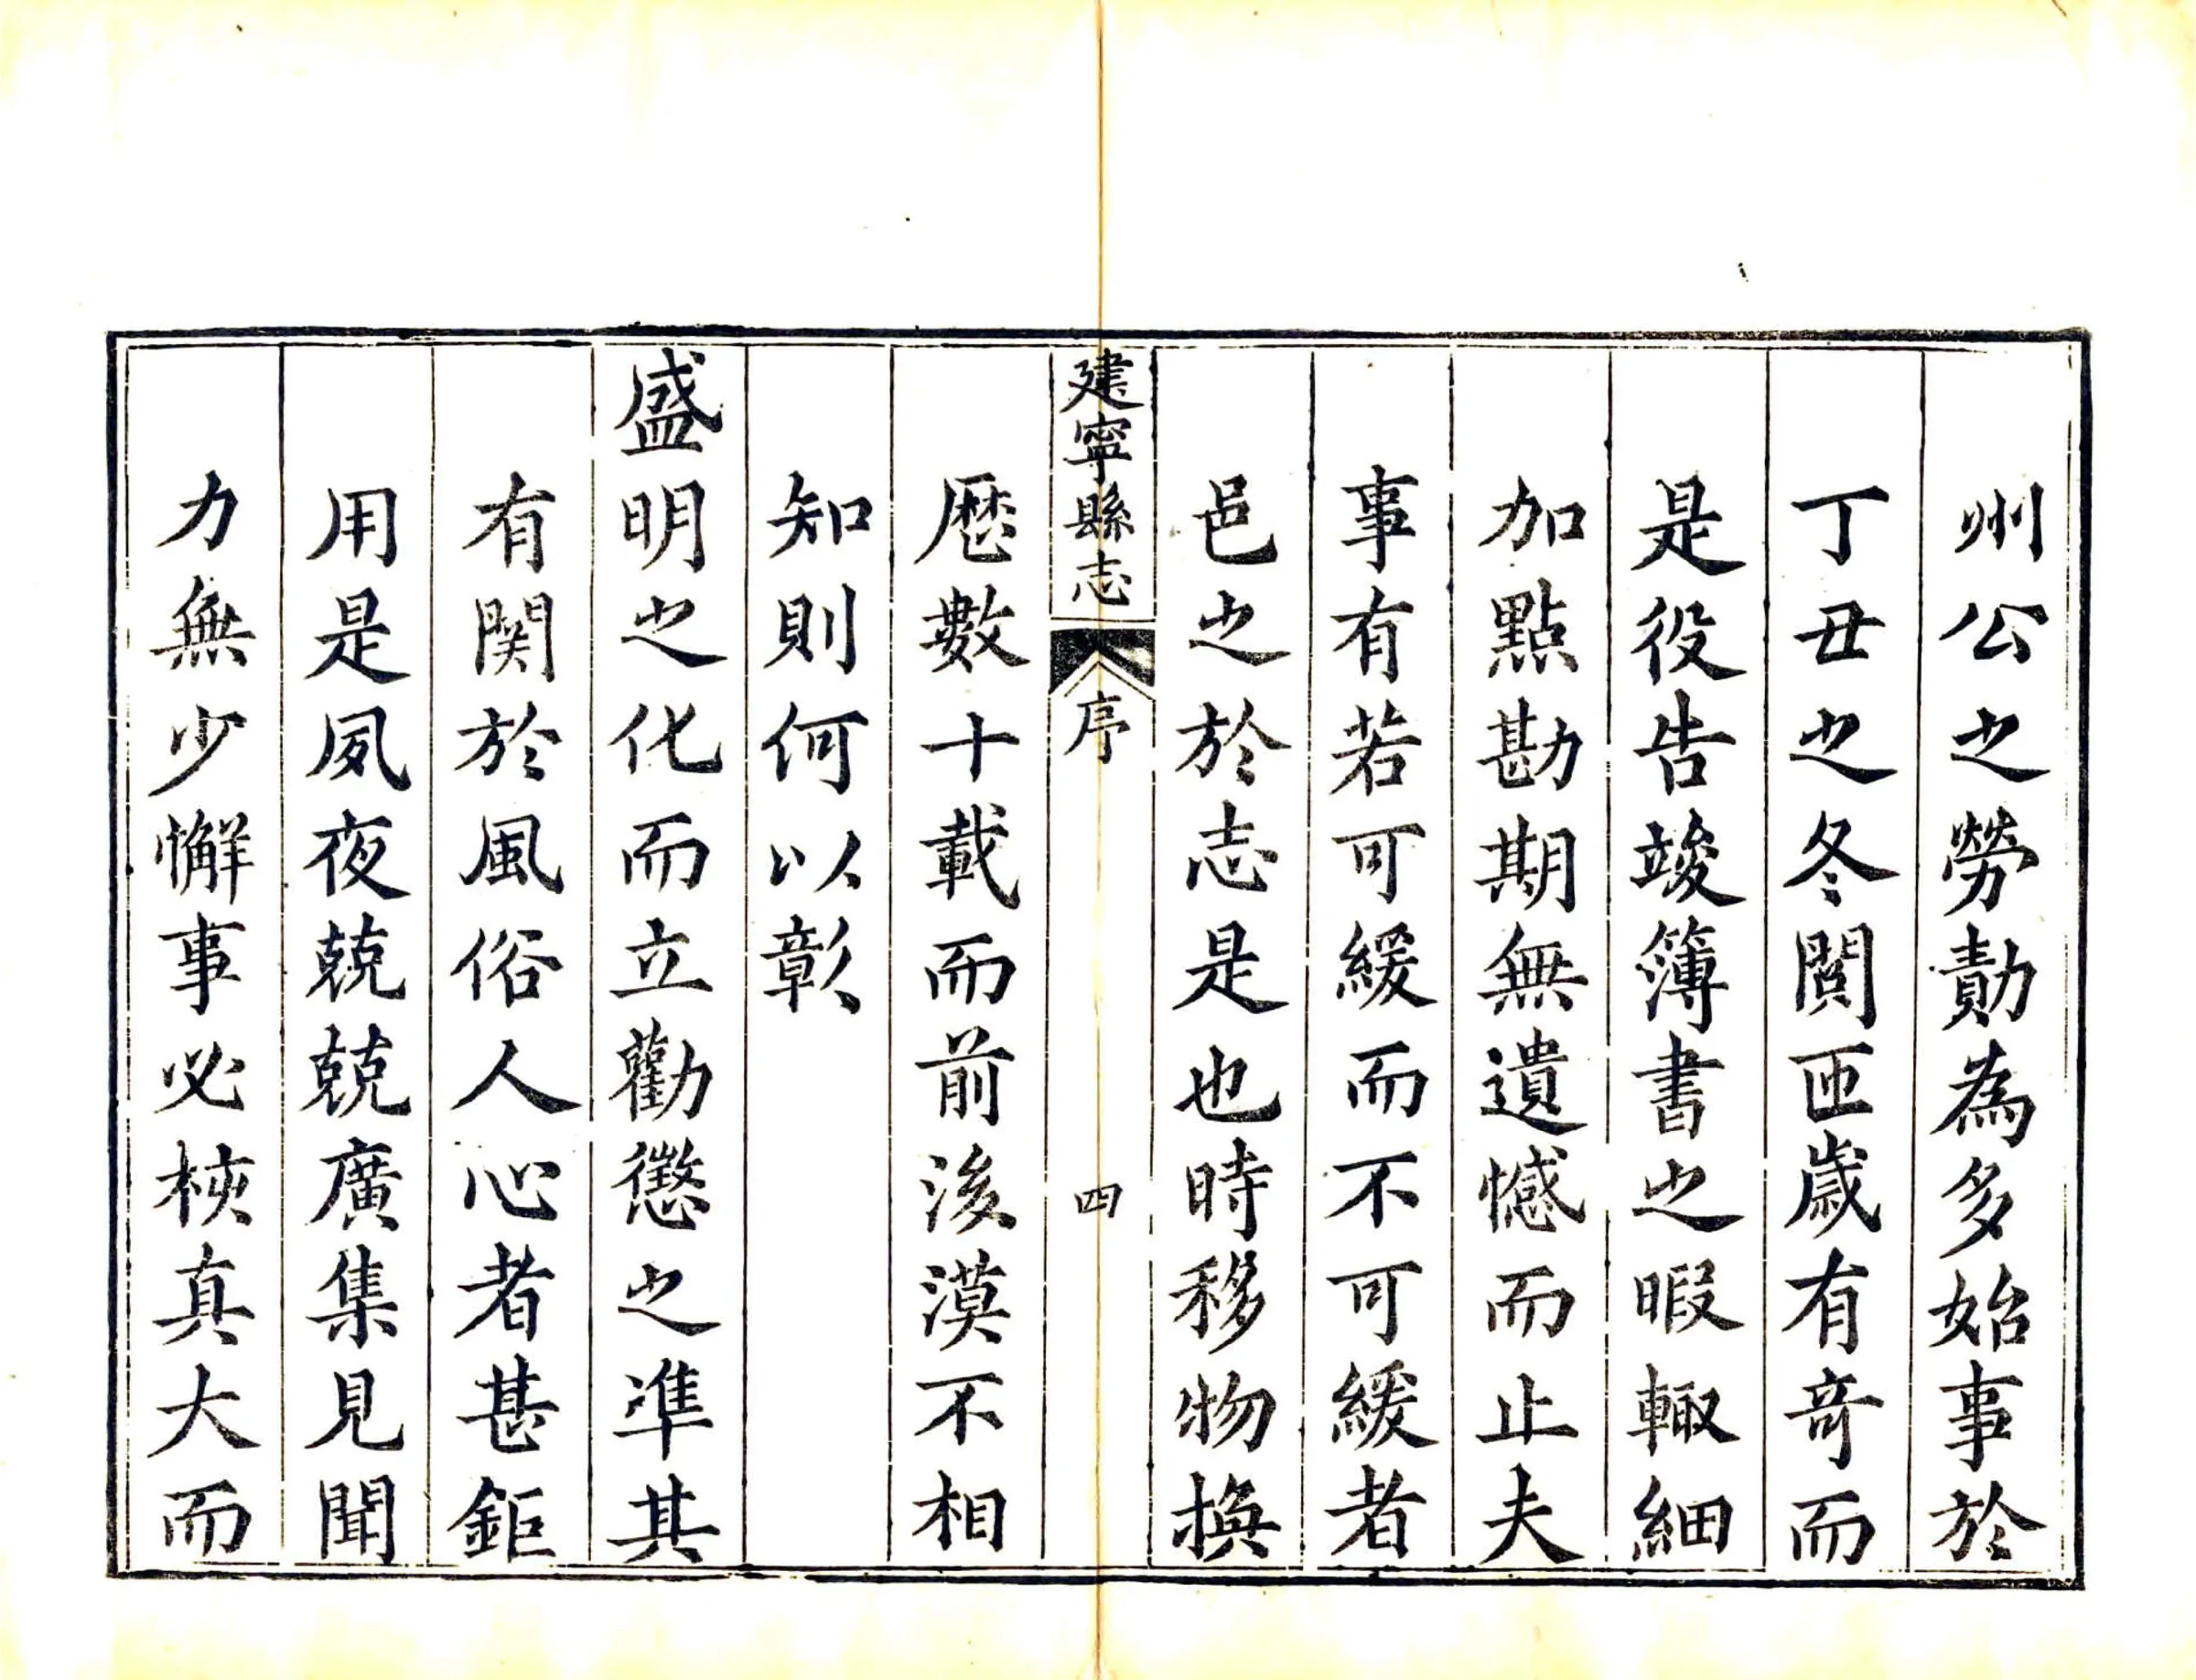 州公之勞勣為多始事於
丁丑之冬閱匝歲有竒而
是役告竣簿書之暇輙細
加點勘期無遺憾而止夫
事有若可緩而不可緩者
邑之於志是也時移物換
建寧縣志 序 四
歴數十載而前後漠不相
知則何以彰
盛明之化而立勸懲之準其
有関於風俗人心者甚鉅
用是夙夜兢兢廣集見聞
力無少懈事必核真大而